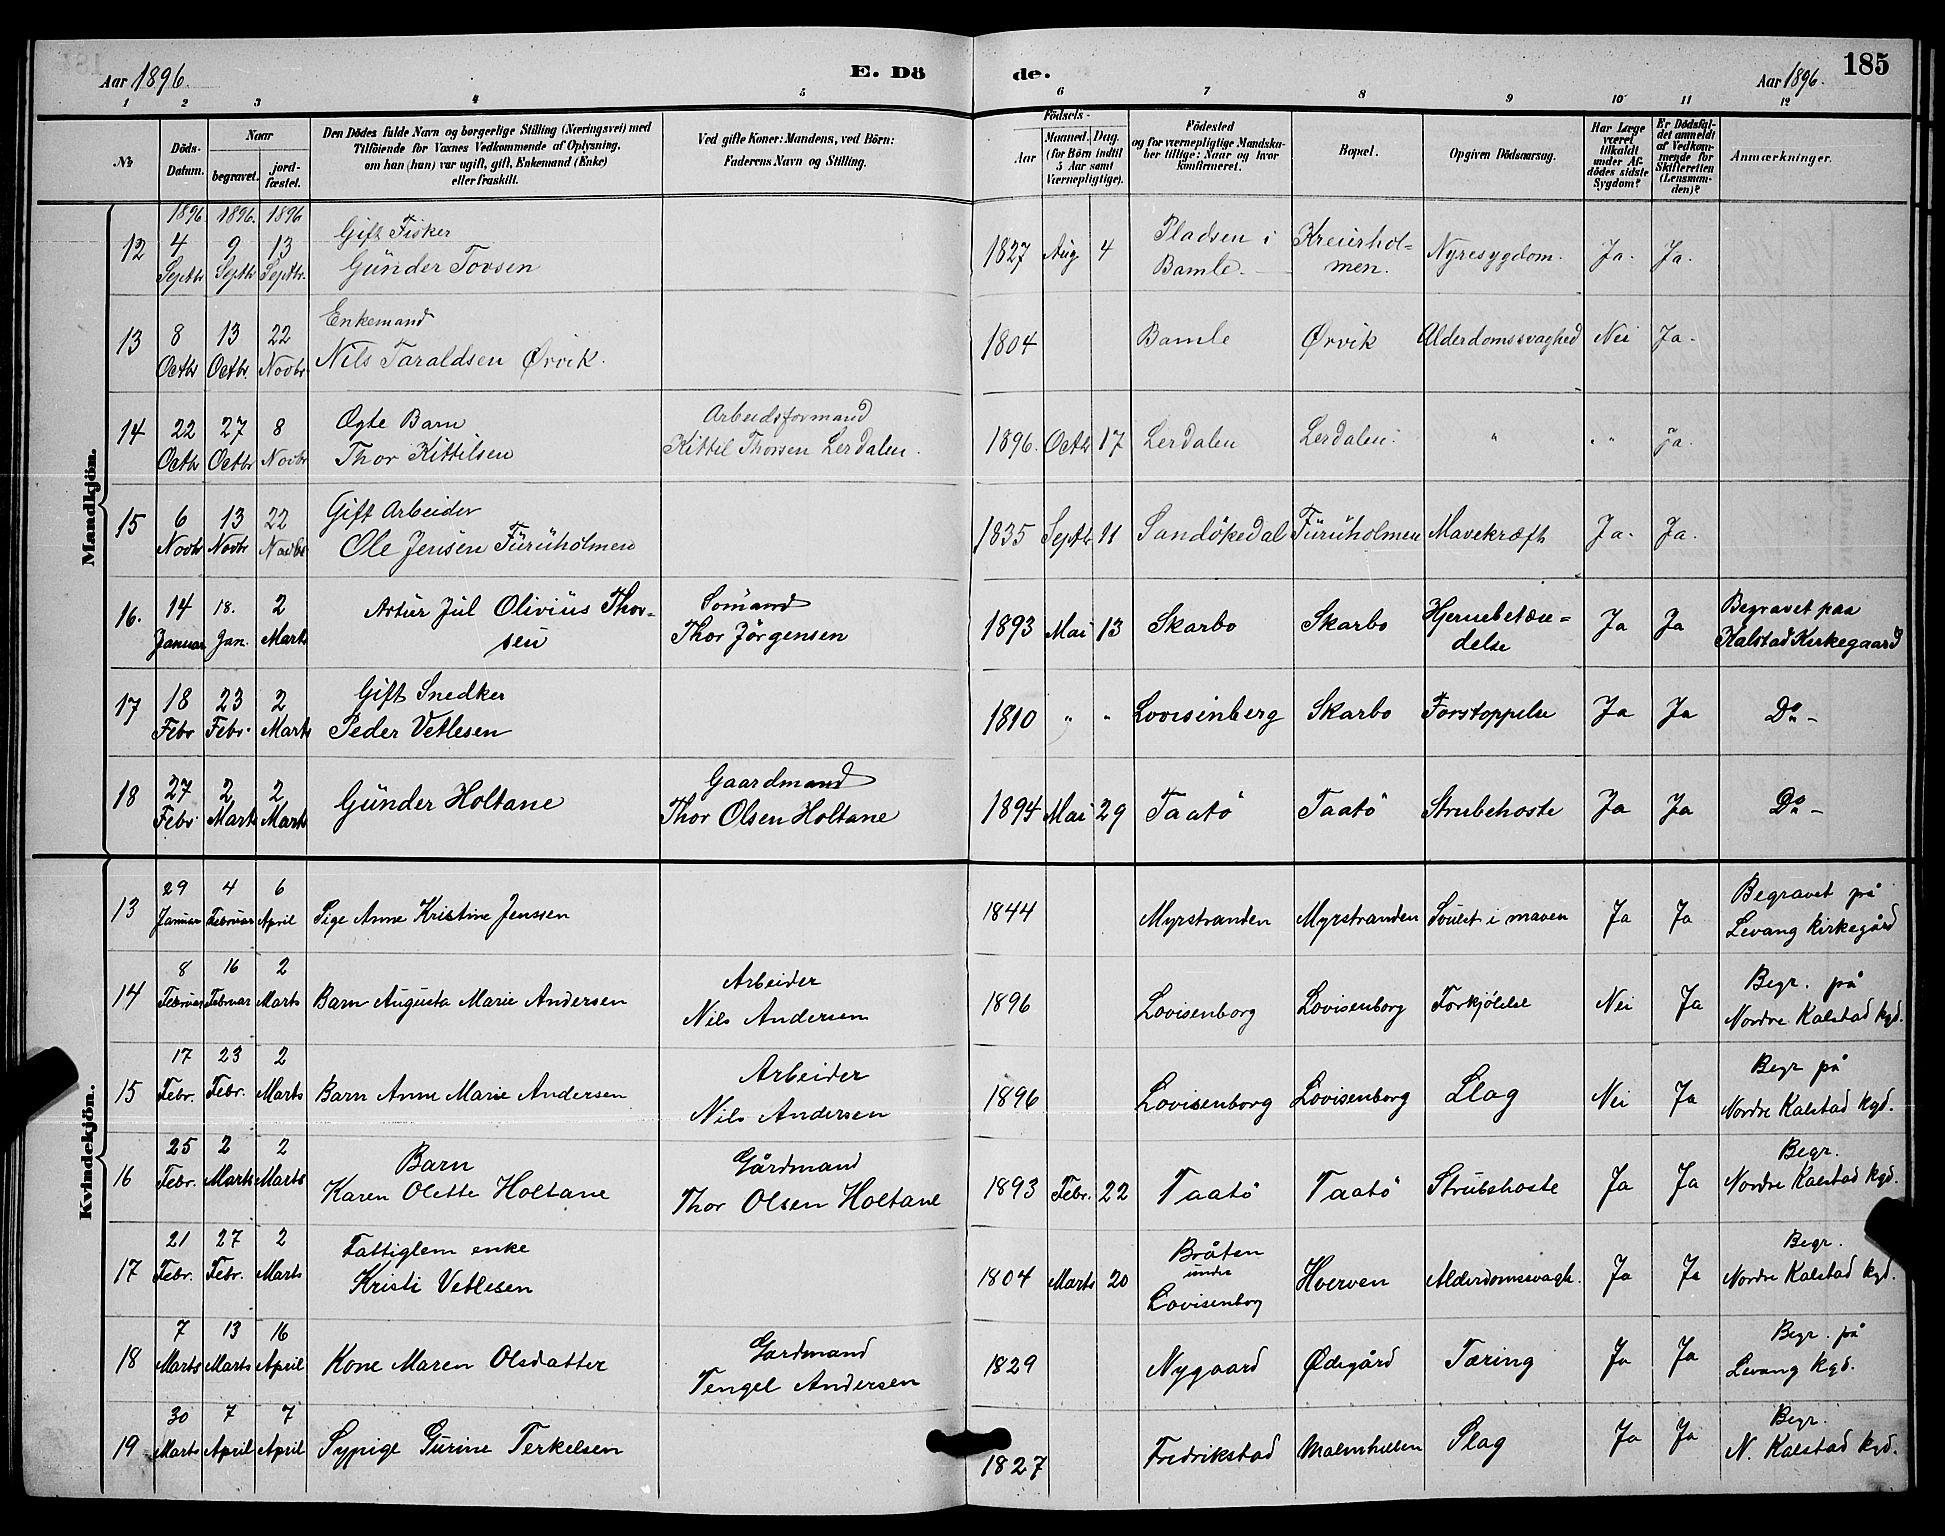 Aar 1896. E. Dö de. Aar 1896. 185
1 2 3 4 5 6 7 8 9 10 11 12
No
Döds-Datum.
Naar
begravet.
jord-fæstet.
Den Dödes fulde Navn og borgerlige Stilling (Næringsvei) med
Tilföiende for Voxnes Vedkommende af Oplysning,
om han (hun) var ugift, gift, Enkemand (Enke)
eller fraskilt.
Ved gifte Koner: Mandens, ved Börn:
Faderens Navn og Stilling.
Födsels-
Aar
Maaned. Dag.
(for Börn indtil
5 Aar samt
Værnepligtige).
Födested
og for værnepligtige Mandska-
ber tillige: Naar og hvor
konfirmeret.
Bopæl.
Opgiven Dödsaarsag.
Har Læge
været
tilkaldt
under Af-
dødes sidste
Sygdom?
Er Dödsfal-
det anmeldt
af Vedkom-
mende for
Skifteretten
(Lensman-
den)?
Anmærkninger.
Mandkjön.
1896. 1896. 1896
12 4 Septbr 9 Septbr 13 Septbr. Gift Fisker
Günder Tovsen 1827 Aug 4 Pladsen i Bamle. Kreierhol-men. Nyresygdom. Ja. Ja.
13 8 Octbr 13 Octbr. 22 Novbr Enkemand
Nils Taraldsen Ørvik. 1804 Bamle Ørvik Alderdomssvaghed Nei Ja.
14 22 Octbr 27 Octbr 8 Novbr Ægte Barn
Thor Kittilsen Arbeidsformand
Kittil Thorsen Lerdalen. 1896. Octbr 17 Lerdalen Lerdalen. " " " Ja.
15 6 Novbr 13 Novbr 22 Novbr Gift Arbeider
Ole Jensen Furuholmen 1835 Septbr 11 Sandökedal Furuholmen Mavekræft Ja. Ja.
16. 14 Januar 18. Jan. 2 Marts Artur Jul Olivius Thor-
sen Sömand
Thor Jörgensen 1893 Mai 13 Skarbo Skarbo Hjernebetæn=delse Ja Ja Begravet paa
Kalstad Kirkegaard
17 18 Febr 23 Febr. 2 Marts Gift Snedker
Peder Vetlesen 1810 " " Lovisenberg Skarbo Forstoppelse Ja Ja Do –
18 27 Febr. 2 Marts 2 Marts Günder Holtane Gaardmand
Thor Olsen Holtane 1894 Mai 29 Taatö Taatö Strubehoste Ja Ja Do –
Kvindekjön.
13 29 Januar 4 Februar 6 April Pige Anne Kristine Jenssen 1844 Myrstranden Myrstranden Svulst i maven Ja Ja Begravet på
Levang kirkegård
14 8 Februar 16 Februar 2 Marts Barn Augusta Marie Andersen Arbeider
Nils Andersen 1896 Lovisenborg Lovisenborg Forkjölelse Nei Ja Begr. på
Nordre Kalstad kgd.
15 17 Febr. 23 Febr. 2 Marts Barn Anne Marie Andersen Arbeider
Nils Andersen 1896 Lovisenborg Lovisenborg Slag Nei Ja Begr på
Nordre Kalstad kgd.
16 25 Febr. 2 Marts 2 Marts Barn
Karen Olette Holtane Gårdmand
Thor Olsen Holtane 1893 Febr. 22 Taatö Taatö Strubehoste Ja Ja Begr.
Nordre Kalstad kgd.
17 21 Febr. 27 Febr. 2 Marts Fattiglem enke
Kristi Vetlesen 1804 Marts 20 Bråten
under
Lovisenborg Hverven Alderdomssvagh. Ja Ja Begr.
Nordre Kalstad kgd.
18 7 Marts 13 Marts 16 April Kone Maren Olsdatter Gardmand
Tengel Andersen 1829 Nygaard Ødegård Tæring Ja Ja Begr. på
Levang kgd.
19 30 Marts 7 April 7 April Sypige Gurine Terkelsen 1827 Fredrikstad Malmhullen Slag Ja Ja Begr.
N. Kalstad kgd.